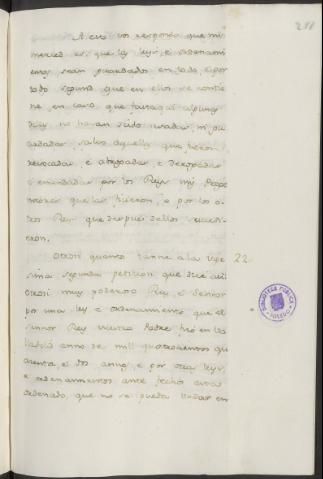 211
A esto vos respondo que mi
merced es que las leyes, e ordenami
entos sean guardados en todo, e por
todo segund que en ellos se contie
ne en caso que fasta aqui algunas
dellas no hayan seido usadas, ni gu
ardadas salvo aquellas que fueron
revocadas, e abrogadas, e derogadas
e emendadas por los Reyes mis Proge
nitores que las ficieron, o por los o
tros Reyes que despues dellos subcedie
ron.
Otrosi quanto tanne a la vige 22
sima segunda peticion que dice asi
Otrosi muy poderoso Rey, e Sennor
por una ley e ordenamiento que el
Sennor Rey vuestro Padre fizo en Va
lladolid anno de mil quatrocientos qu
arenta, e dos annos, e por otras leyes,
e ordenamientos ante fechos estaba
ordenado, que no se puedan librar en
BIBLIOTECA PUBLICA
TOLEDO